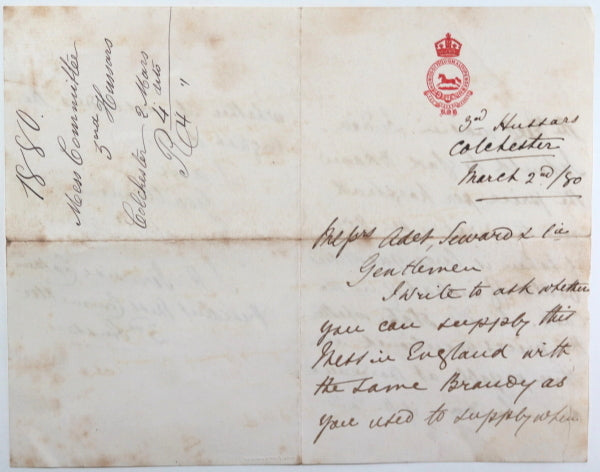 1880.
Mess Committee
3rd Hussars
Colchester 2 Mars
R 4 dito
C 4 "
3rd Hussars
Colchester
March 2nd/80
Messrs Adet, Seward & Cie
Gentlemen
I write to ask whether
you can supply this
Mess in England with
the same Brandy as
you used to supply when